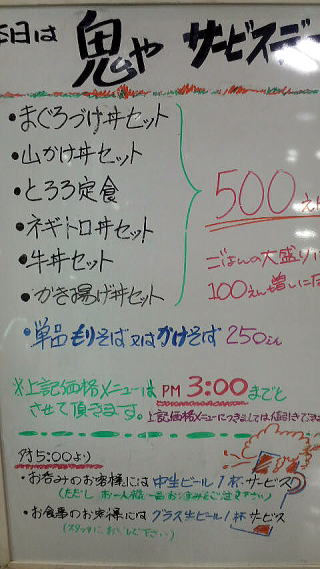 本日は 鬼や サービスデー
・まぐろづけ丼セット
・山かけ丼セット
・とろろ定食
・ネギトロ丼セット
・牛丼セット
・かき揚げ丼セット
500えん
ごはんの大盛りは
100えん増しに
・単品もりそば又はかけそば 250えん
※上記価格メニューは PM 3:00までと
させて頂きます。上記価格メニューにつきましては値引きできま
PM5:00より
・お呑みのお客様には 中生ビール1杯サービス
(ただし お一人様一品おつまみをご注文下さい)
・お食事のお客様には グラス生ビール1杯サービス
(スタッフに 下さい)